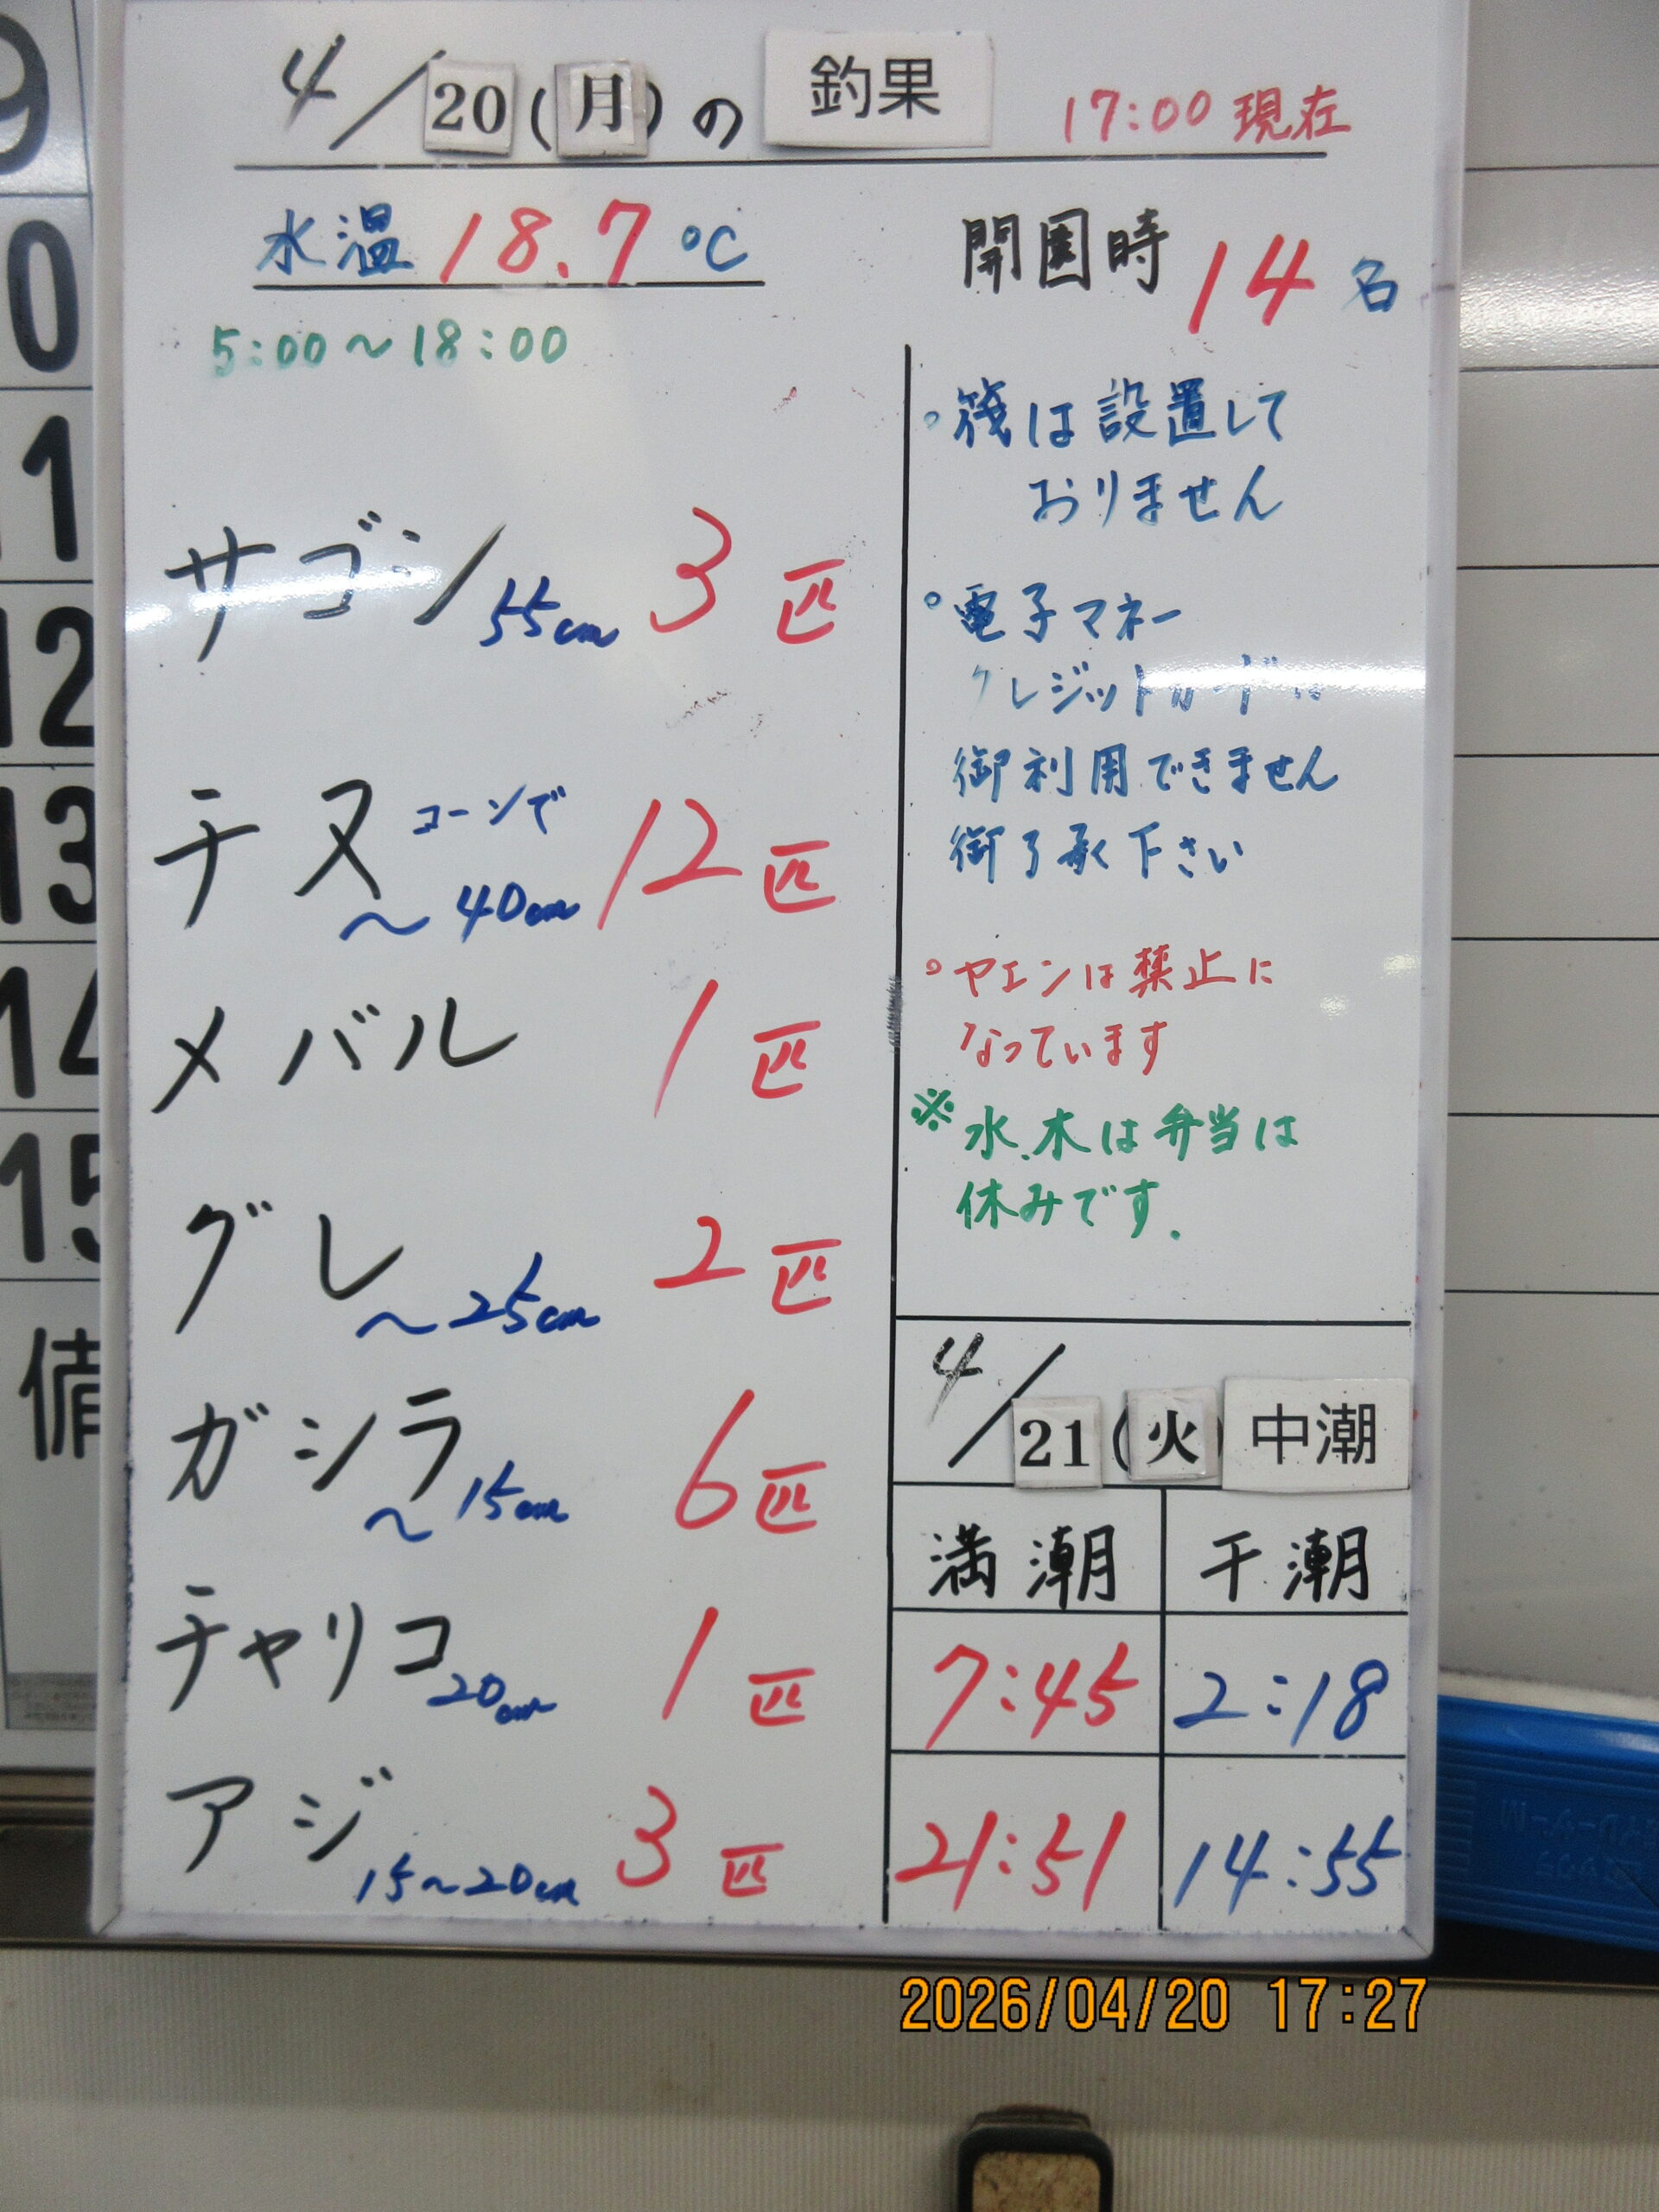 4/20(月)の 釣果 17:00 現在
水温 18.7 ℃
開園時 14 名
5:00〜18:00
サゴシ 55cm 3 匹
チヌ コーンで 〜40cm 12 匹
メバル 1 匹
グレ 〜25cm 2 匹
ガシラ 〜15cm 6 匹
チャリコ 20cm 1 匹
アジ 15〜20cm 3 匹
。筏は設置して
おりません
。電子マネー
クレジットカードは
御利用できません
御了承下さい
。ヤエンは禁止に
なっています
※水.木は弁当は
休みです.
4/21(火) 中潮
満潮 干潮
7:45 2:18
21:51 14:55
9
10
11
12
13
14
15
備
2026/04/20 17:27